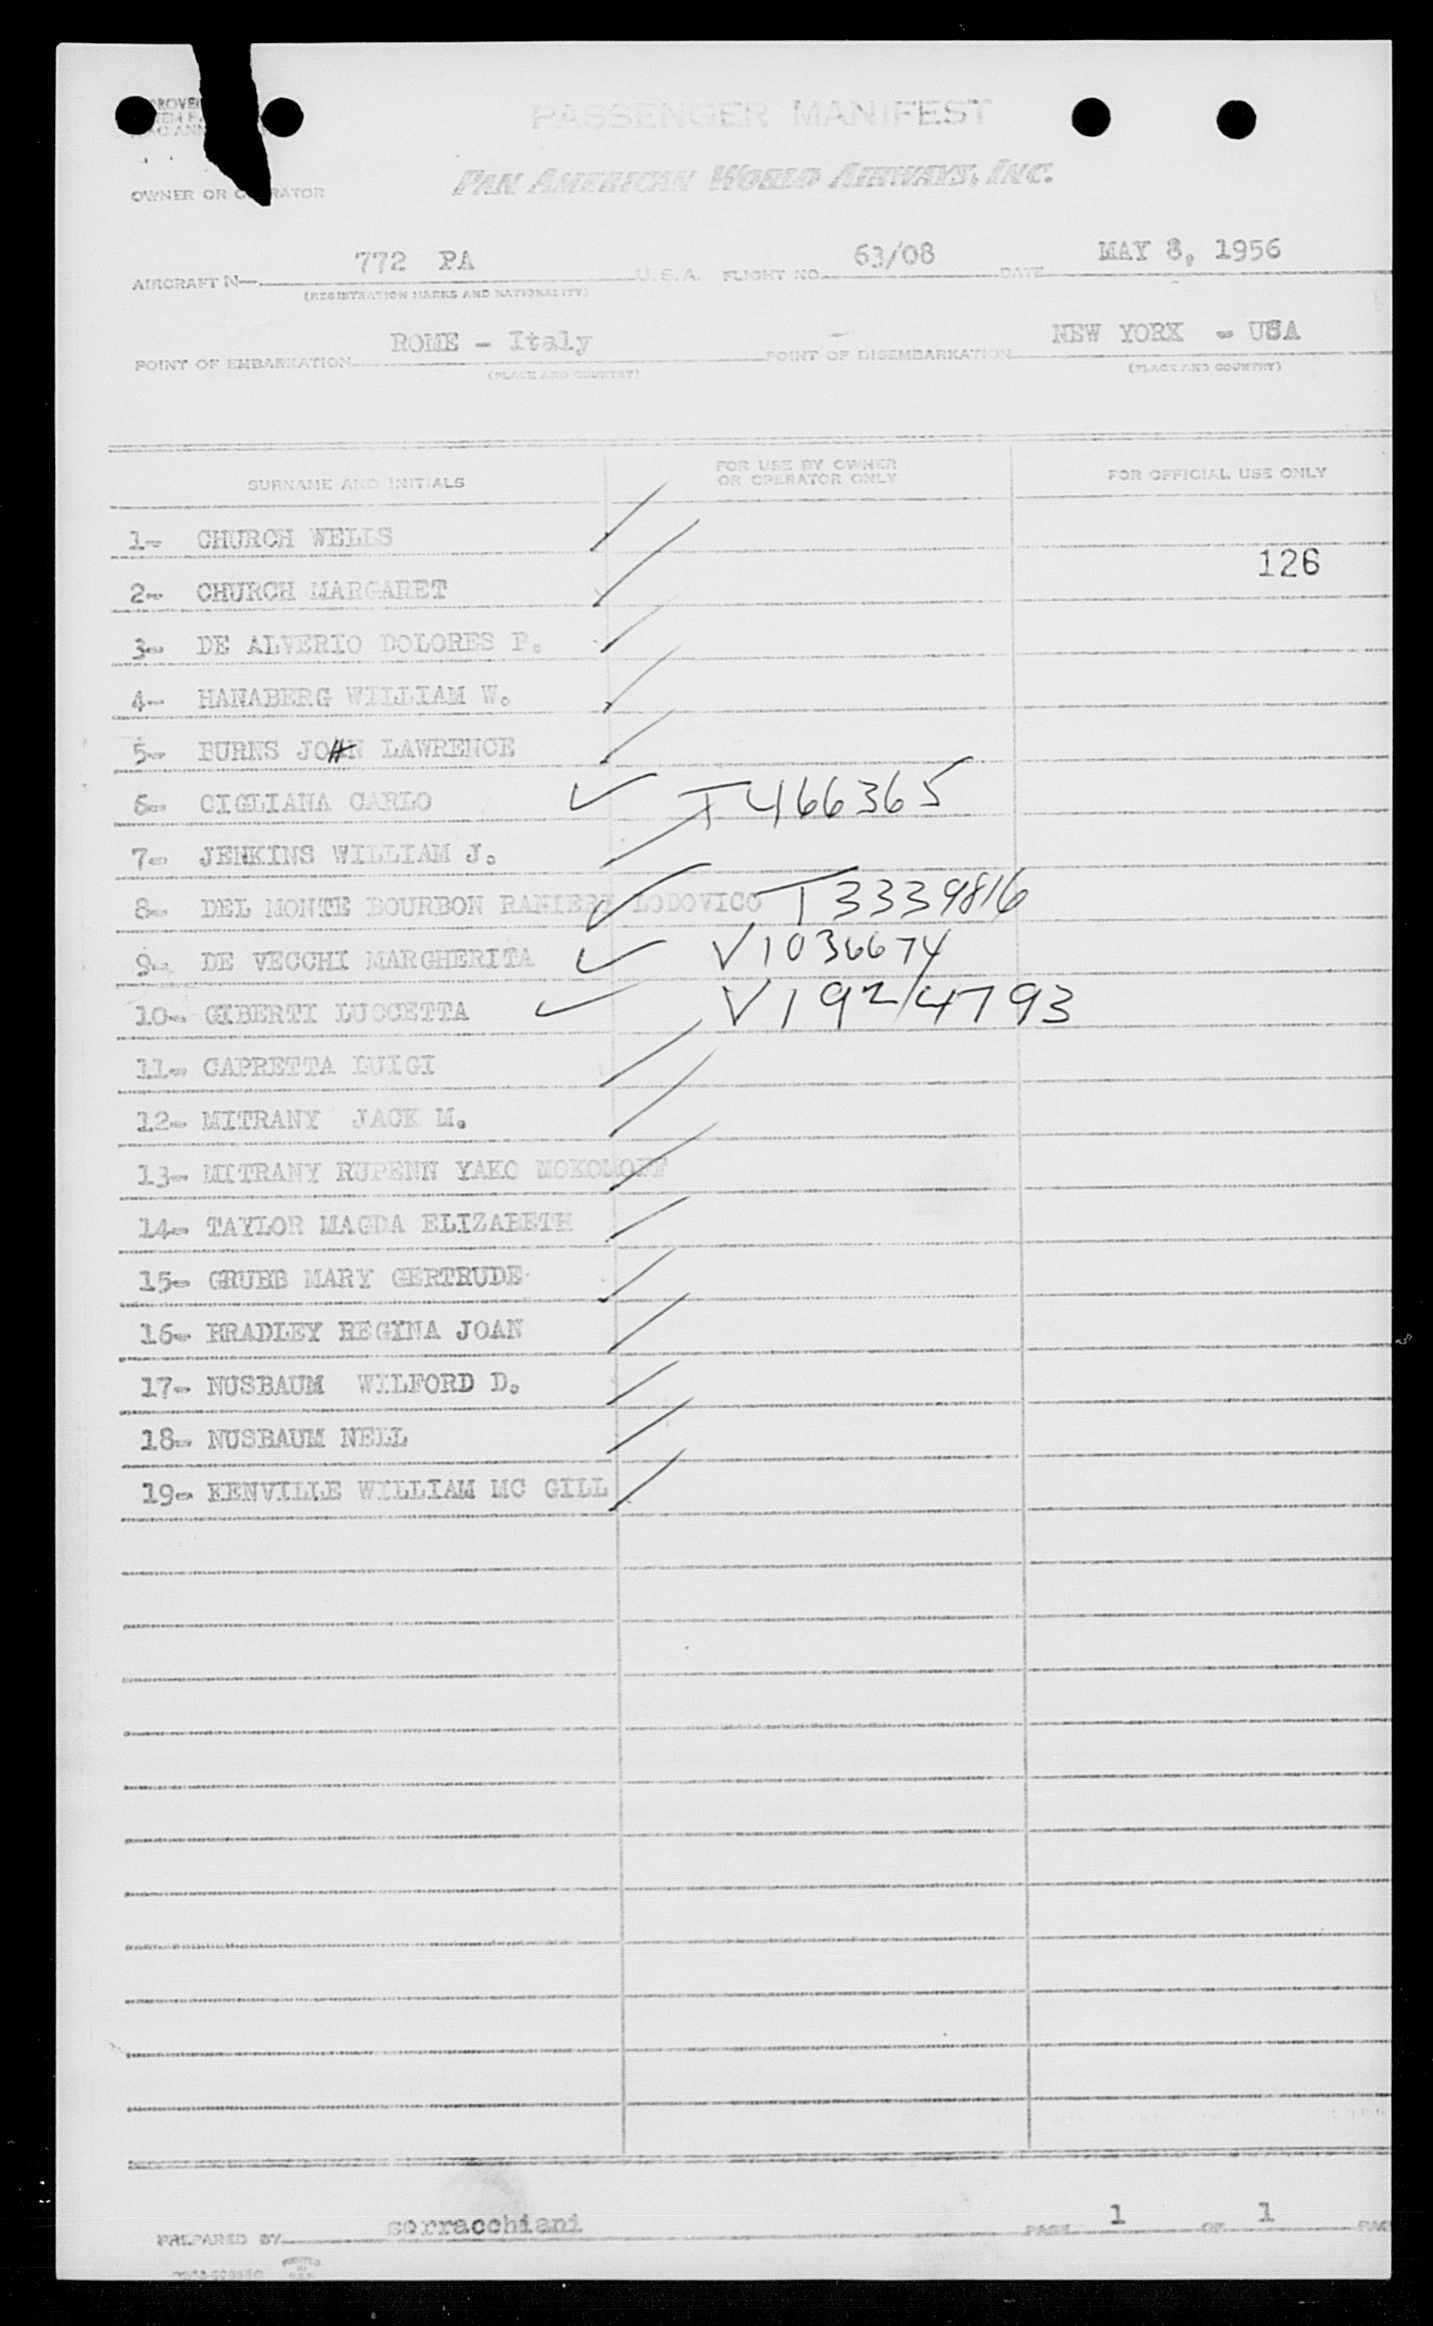 PASSENGER MANIFEST
PAN AMERICAN WORLD AIRWAYS, INC.
OWNER OR OPERATOR
AIRCRAFT N— 772 PA U.S.A. FLIGHT NO. 63/08 DATE MAY 8, 1956
(REGISTRATION MARKS AND NATIONALITY)
POINT OF EMBARKATION ROME - Italy POINT OF DISEMBARKATION NEW YORK - USA
(PLACE AND COUNTRY) (PLACE AND COUNTRY)
SURNAME AND INITIALS FOR USE BY OWNER OR OPERATOR ONLY FOR OFFICIAL USE ONLY
1- CHURCH WELLS
126
2- CHURCH MARGARET
3- DE ALVERIO DOLORES P.
4- HANABERG WILLIAM W.
5- BURNS JOHN LAWRENCE
6- CIGLIANA CARLO T466365
7- JENKINS WILLIAM J.
8- DEL MONTE BOURBON RANIERI LODOVICO T3339816
9- DE VECCHI MARGHERITA V1036674
10- GIBERTI LUCCETTA V1924793
11- CAPRETTA LUIGI
12- MITRANY JACK M.
13- MITRANY RUPENN YAKO MOKOMOFF
14- TAYLOR MAGDA ELIZABETH
15- GRUBB MARY GERTRUDE
16- BRADLEY REGINA JOAN
17- NUSBAUM WILFORD D.
18- NUSBAUM NELL
19- KENVILLE WILLIAM MC GILL
PREPARED BY serracchiani PAGE 1 OF 1